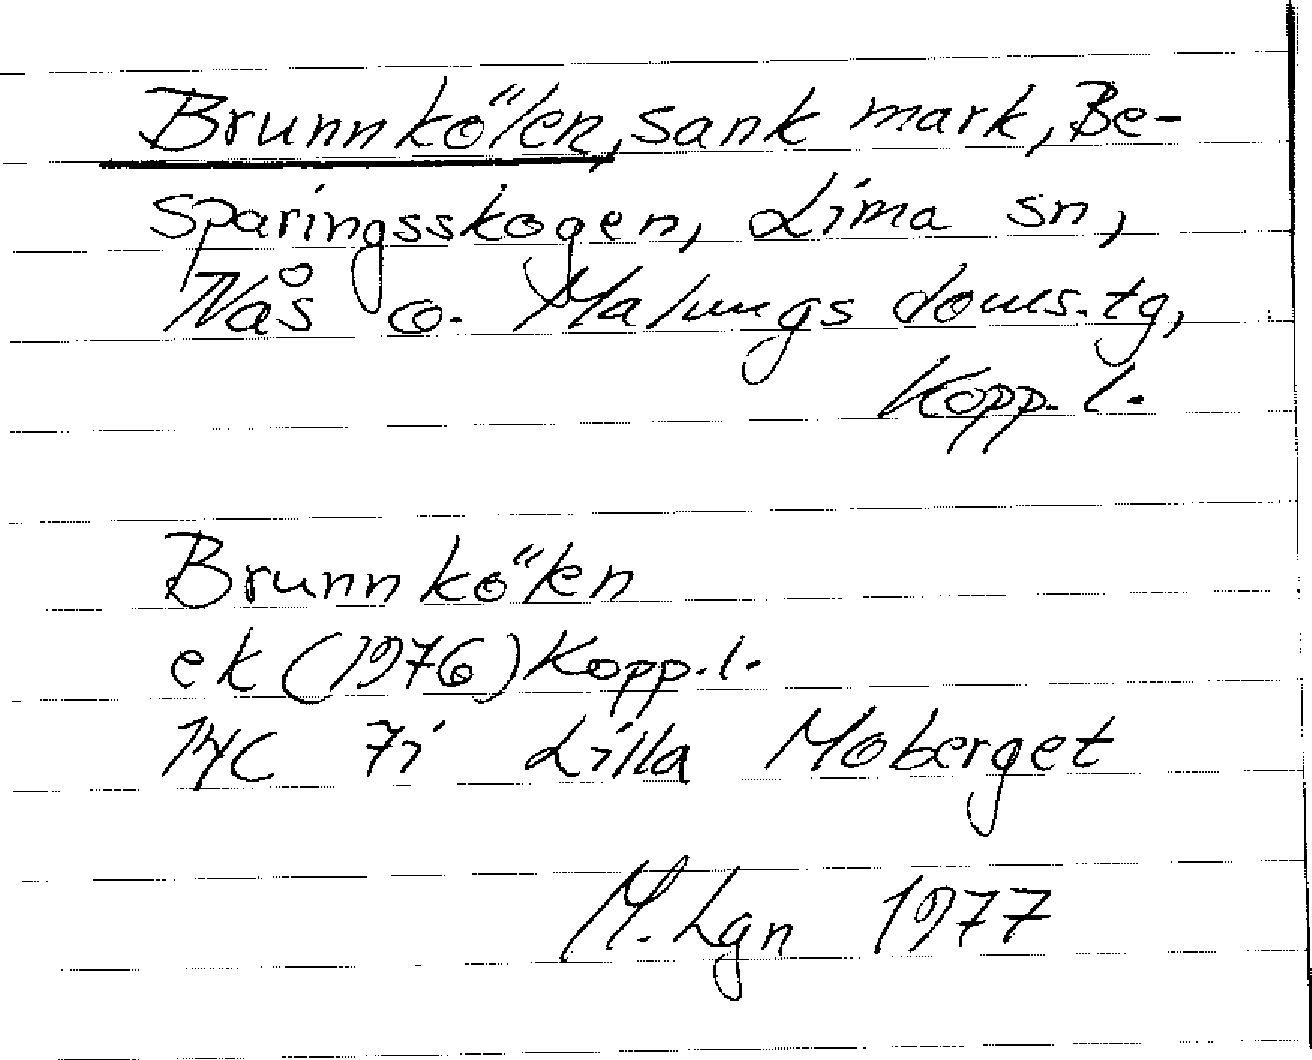 Brunnkölen, sank mark, Be-
sparingsskogen, Lima sn,
Nås o. Malungs doms.tg,
Kopp. l.
Brunnkölen
ek (1976) Kopp. l.
14C 7i Lilla Moberget
M. Lgn 1977